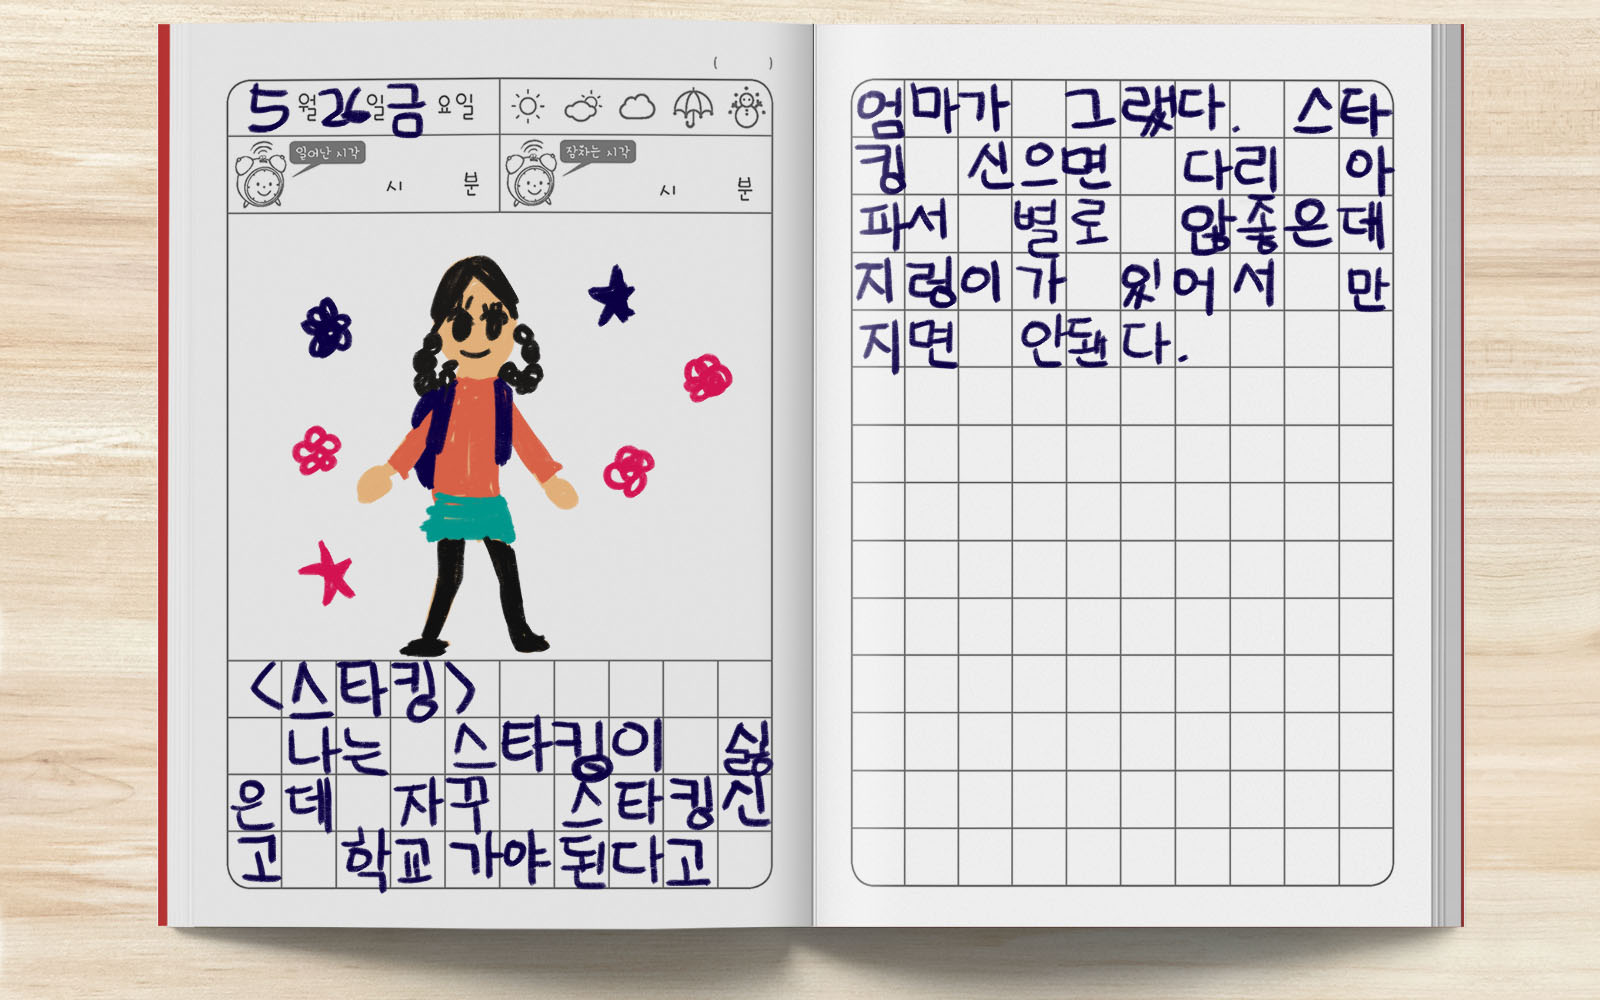 ( )
5월 26일 금요일
일어난 시각 시 분 잠자는 시각 시 분
<스타킹>
나는 스타킹이 싫
은데 자꾸 스타킹신
고 학교 가야 된다고
엄마가 그랬다. 스타
킹 신으면 다리 아
파서 별로 않좋은데
지렁이가 있어서 만
지면 안됀다.